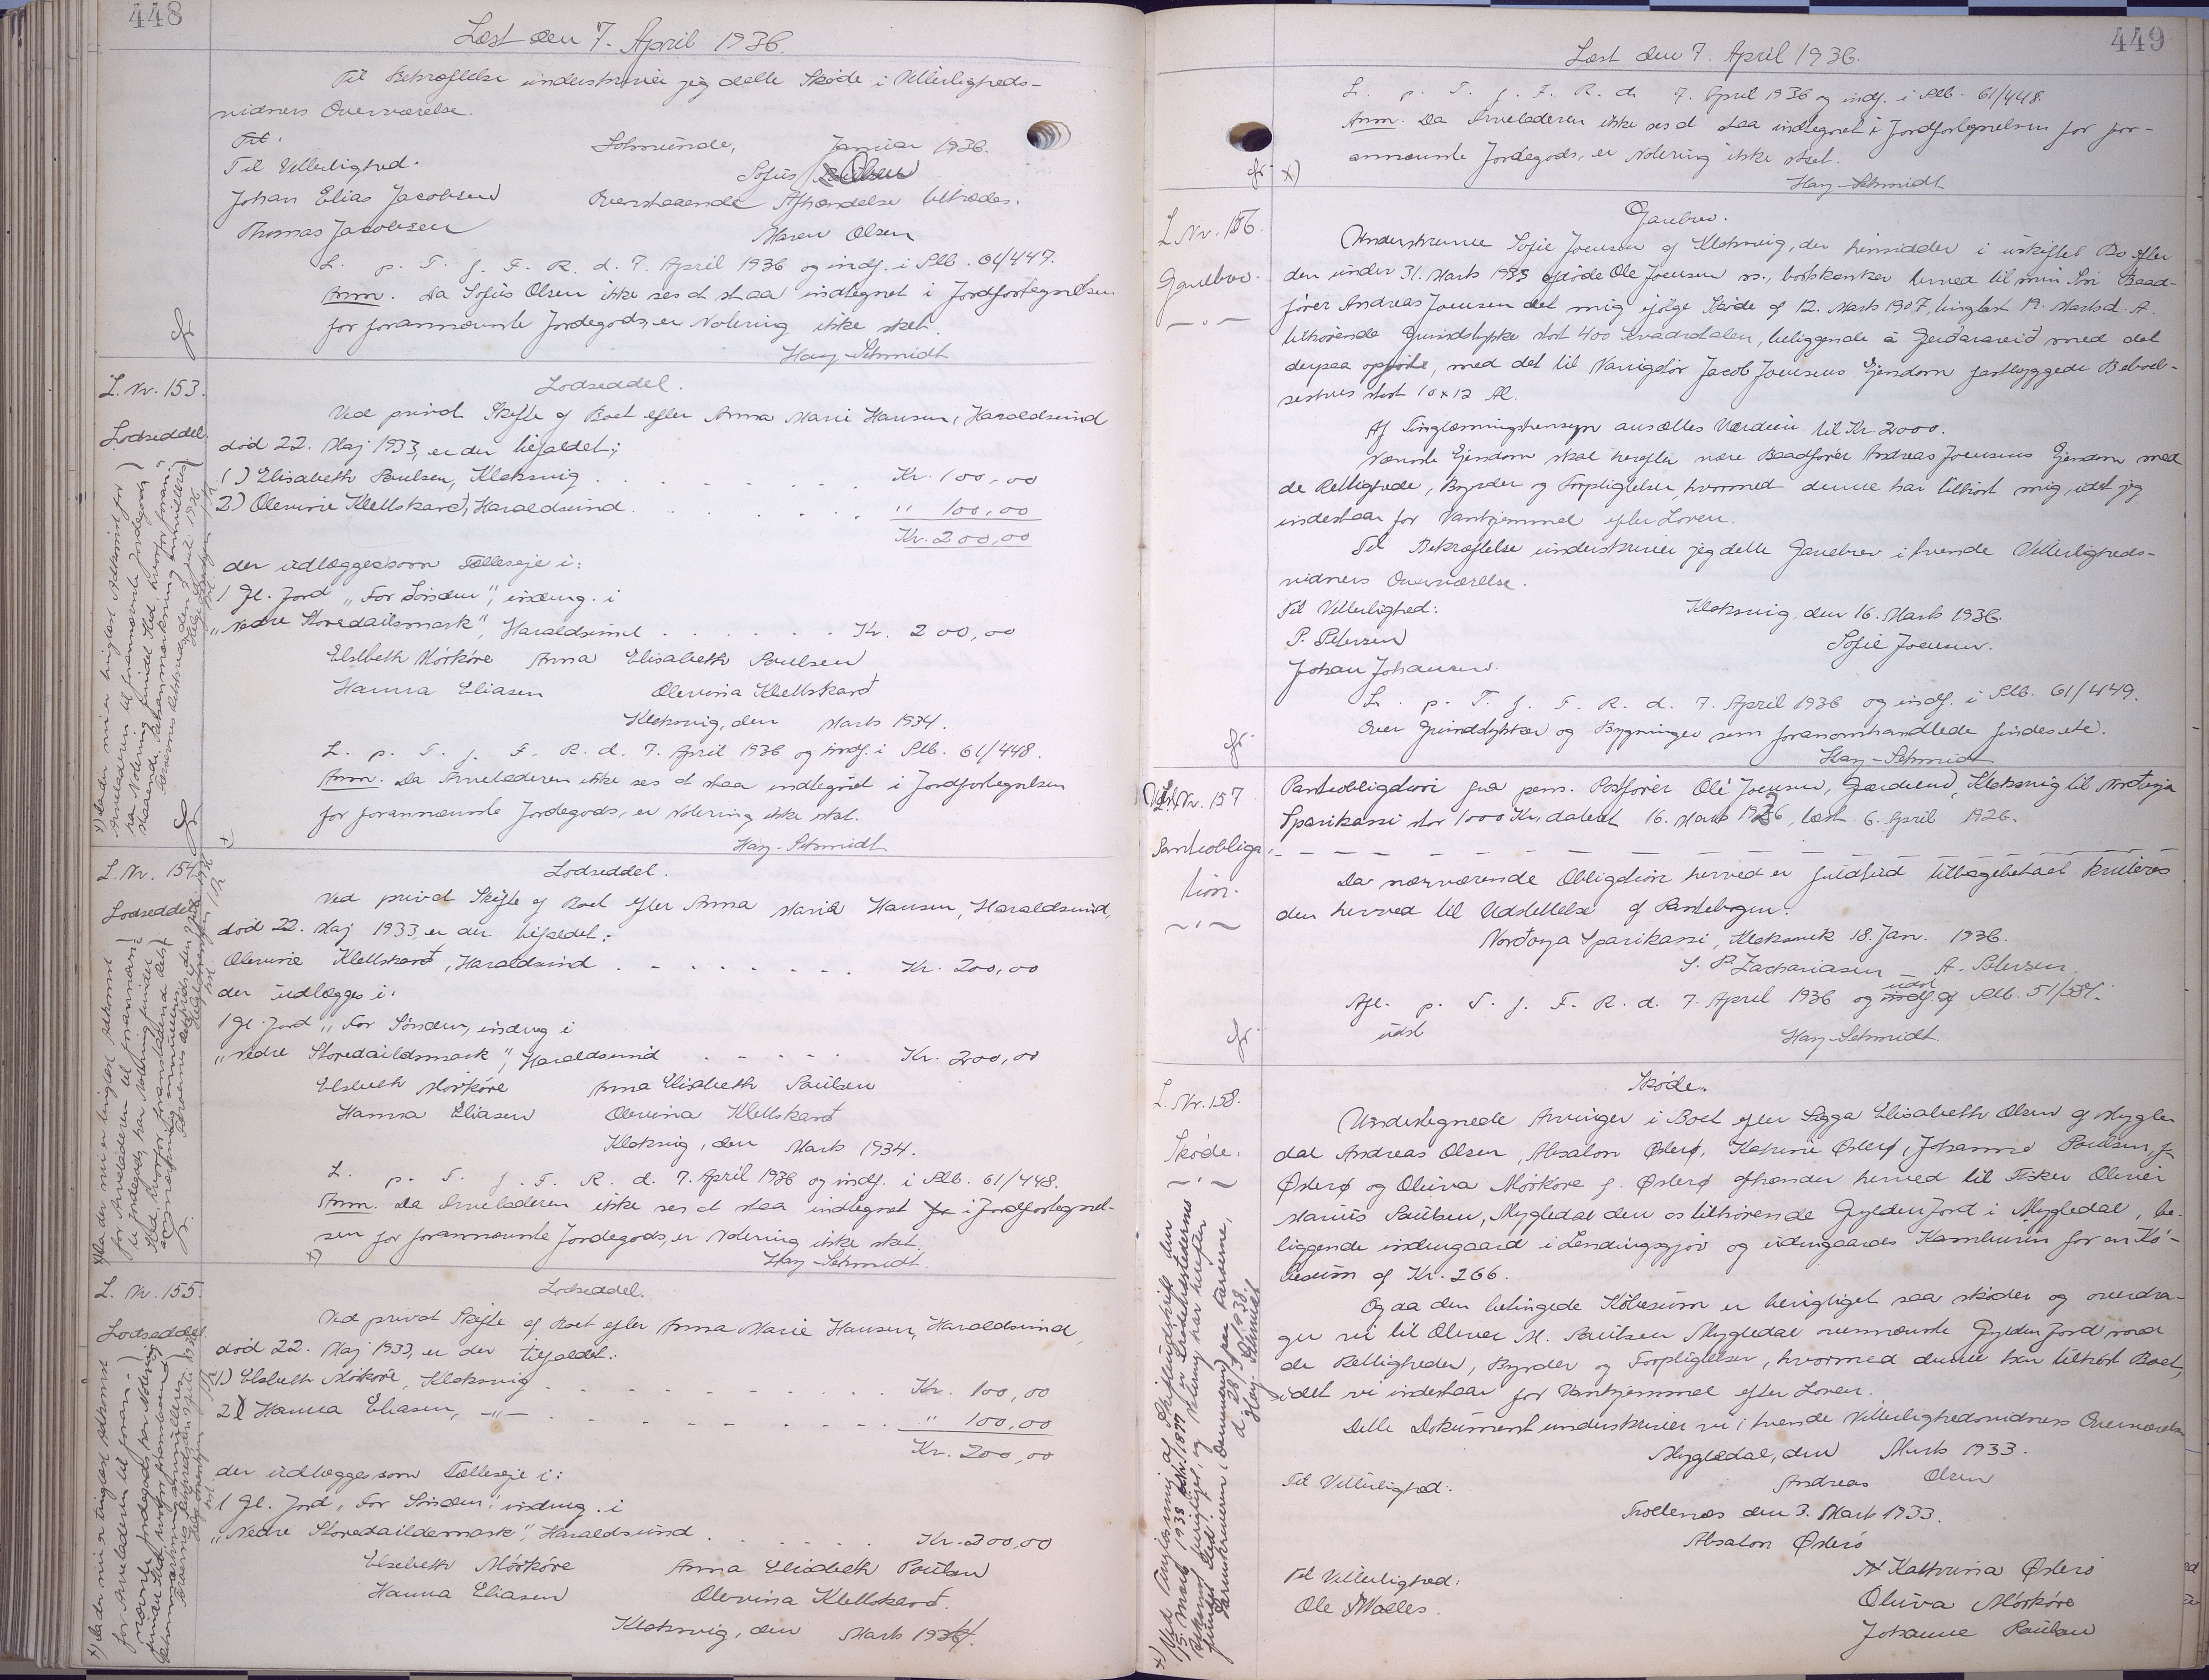 448
Læst den 7. April 1936.
Til Bekræftelse underskriver jeg dette Skøde i Vitterligheds-
vidners Overværelse.
Til.
Solmunde, Januar 1936.
Til Vitterlighed.
Sofus Olsen
Johan Elias Jacobsen
Ovenstaaende Afhændelse tiltrædes.
Thomas Jacobsen
Maren Olsen
L. p. T. f. F. R. d. 7. April 1936 og indf. i Ptb. 61/447.
Anm. Da Sofus Olsen ikke ses at staa indtegnet i Jordfortegnelsen
for forannævnte Jordegods, er Notering ikke sket.
Hay-Schmidt
L. Nr. 153.
Lodseddel.
Lodseddel.
Ved privat Skifte af Boet efter Anna Marie Hansen, Haraldsund
død 22. Maj 1933, er der tilfaldet:
1) Elisabeth Poulsen, Klaksvig . . . . . . Kr. 100,00
2) Olevine Klettskarð, Haraldsund . . . . . " 100,00
Kr. 200,00
der udlægges som Fælleseje i:
1 Gl. Jord "For Sønden", indmg. i
"Nedre Storedailsmark", Haraldsund . . . . . . Kr. 200,00
Elsebeth Mórkóre Anna Elisabeth Poulsen
Hanna Eliasen Olevina Klettskarð
Klaksvig, den Marts 1934.
L. p. T. f. F. R. d. 7. April 1936 og indf. i Ptb. 61/448.
Anm. Da Arveladeren ikke ses at staa indtegnet i Jordfortegnelsen
for forannævnte Jordegods, er Notering ikke sket.
Hay-Schmidt
L. Nr. 154.
Lodseddel
Lodseddel.
Ved privat Skifte af Boet efter Anna Marie Hansen, Haraldsund,
død 22. Maj 1933, er der tilfaldet:
Olevine Klettskarð, Haraldsund . . . . . . . Kr. 200,00
der udlægges i:
1 Gl. Jord "For Sønden, indmg i
"Nedre Storedaildsmark", Haraldsund . . . . . Kr. 200,00
Elsbeth Mórkóre Anna Elisabeth Poulsen
Hanna Eliasen Olevina Klettskarð
Klaksvig, den Marts 1934.
L. p. T. f. F. R. d. 7. April 1936 og indf. i Ptb. 61/448.
Anm. Da Arveladeren ikke ses at staa indtegnet i Jordfortegnel-
sen for forannævnte Jordegods, er Notering ikke sket.
x) Hay-Schmidt.
L. Nr. 155.
Lodseddel
Lodseddel.
Ved privat Skifte af Boet efter Anna Marie Hansen, Haraldsund,
død 22. Maj 1933, er der tilfaldet:
1) Elsbeth Mórkóre, Klaksvig . . . . . . . . . Kr. 100,00
2) Hanna Eliasen, -"- . . . . . . . . . " 100,00
Kr. 200,00
der udlægges som Fælleseje i:
1 Gl. Jord "For Sønden", indmg. i
"Nedre Storedaildemark", Haraldsund . . . . . . Kr. 200,00
Elsebeth Mórkóre Anna Elisabeth Poulsen
Hanna Eliasen Olevina Klettskarð.
Klaksvig, den Marts 1934.
449
Læst den 7. April 1936.
L. p. T. f. F. R. d. 7. April 1936 og indf. i Ptb. 61/448.
Anm. Da Arveladeren ikke ses at staa indtegnet i Jordfortegnelsen for for-
annævnte Jordegods, er Notering ikke sket.
x) Hay-Schmidt
L. Nr. 156.
Gavebrev.
Gavebrev.
Underskrevne Sofie Joensen af Klaksvig, der hensidder i uskiftet Bo efter
den under 31. Marts 1935 afdøde Ole Joensen m., bortskænker herved til min Søn Baad-
fører Andreas Joensen det mig ifølge Skøde af 12. Marts 1907, tinglæst 19. Marts d. A.
tilhørende Grundstykke stort 400 Kvadratalen, beliggende á Gerðaraveið med det
derpaa opførte, med det til Navigatör Jacob Joensens Ejendom fastbyggede Beboel-
seshus stort 10 x 12 Al.
Af Tinglæsningshensyn ansættes Værdien til Kr. 2000.
Nævnte Ejendom skal herefter være Baadfører Andreas Joensens Ejendom med
de Rettighede, Byrder og Forpligtelser, hvormed denne har tilhørt mig, idet jeg
indestaar for Vanhjemmel efter Loven.
Til Bekræftelse underskriver jeg dette Gavebrev i tvende Vitterligheds-
vidners Overværelse.
Til Vitterlighed: Klaksvig, den 16. Marts 1936.
P. Petersen Sofie Joensen.
Johan Johansen.
L. p. T. f. F. R. d. 7. April 1936 og indf. i Ptb. 61/449.
Over Grundstykker og Bygninger som foranomhandlede findes etc.
Hay-Schmidt
L. Nr. 157
Panteobliga-
tion.
Panteobligation fra pens. Postfører Ole Joensen, Gærdum, Klaksvig til Norðoya
Sparikassi stor 1000 Kr, dateret 16. Marts 1926, læst 6. April 1926.
Da nærværende Obligation herved er fuldtud tilbagebetalt kvitteres
den herved til Udslettelse af Pantebogen.
Norðoya Sparikassi, Klaksvik 18. Jan. 1936.
J. P. Zachariasen A. Petersen.
Afl. p. T. f. F. R. d. 7. April 1936 og udsl. af Ptb. 51/584.
udsl
Hay-Schmidt.
L. Nr. 158.
Skøde.
Skøde.
Undertegnede Arvinger i Boet efter Sigga Elisabeth Olsen af Mygle-
dal Andreas Olsen, Absalon Østerø, Katrine Østerø, Johanne Poulsen, f.
Østerø og Oluva Mórkóre f. Østerø afhænder herved til Fisker Oliver
Marius Poulsen, Mygledal den os tilhørende Gylden Jord i Mygledal, be-
liggende indengaard i Lendingsgjov og udengaards Kambur in for en Kø-
besum af Kr. 266.
Og da den betingede Købesum er berigtiget saa skøder og overdra-
ger vi til Oliver M. Poulsen Mygledal ovennævnte Gylden Jord med
de Rettigheder, Byrder og Forpligtelser, hvormed denne har tilhørt Boet,
idet vi indestaar for Vanhjemmel efter Loven.
Dette Dokument underskriver vi i tvende Vitterlighedsvidners Overværelse
Mygledal, den Marts 1933.
Til Vitterlighed: Andreas Olsen
Trøllenæs den 3. Mart 1933.
Absalon Østerö
Til Vitterlighed: Kathrina Østerö
Ole Walles. Oluva Mórkóre
Johanne Poulsen